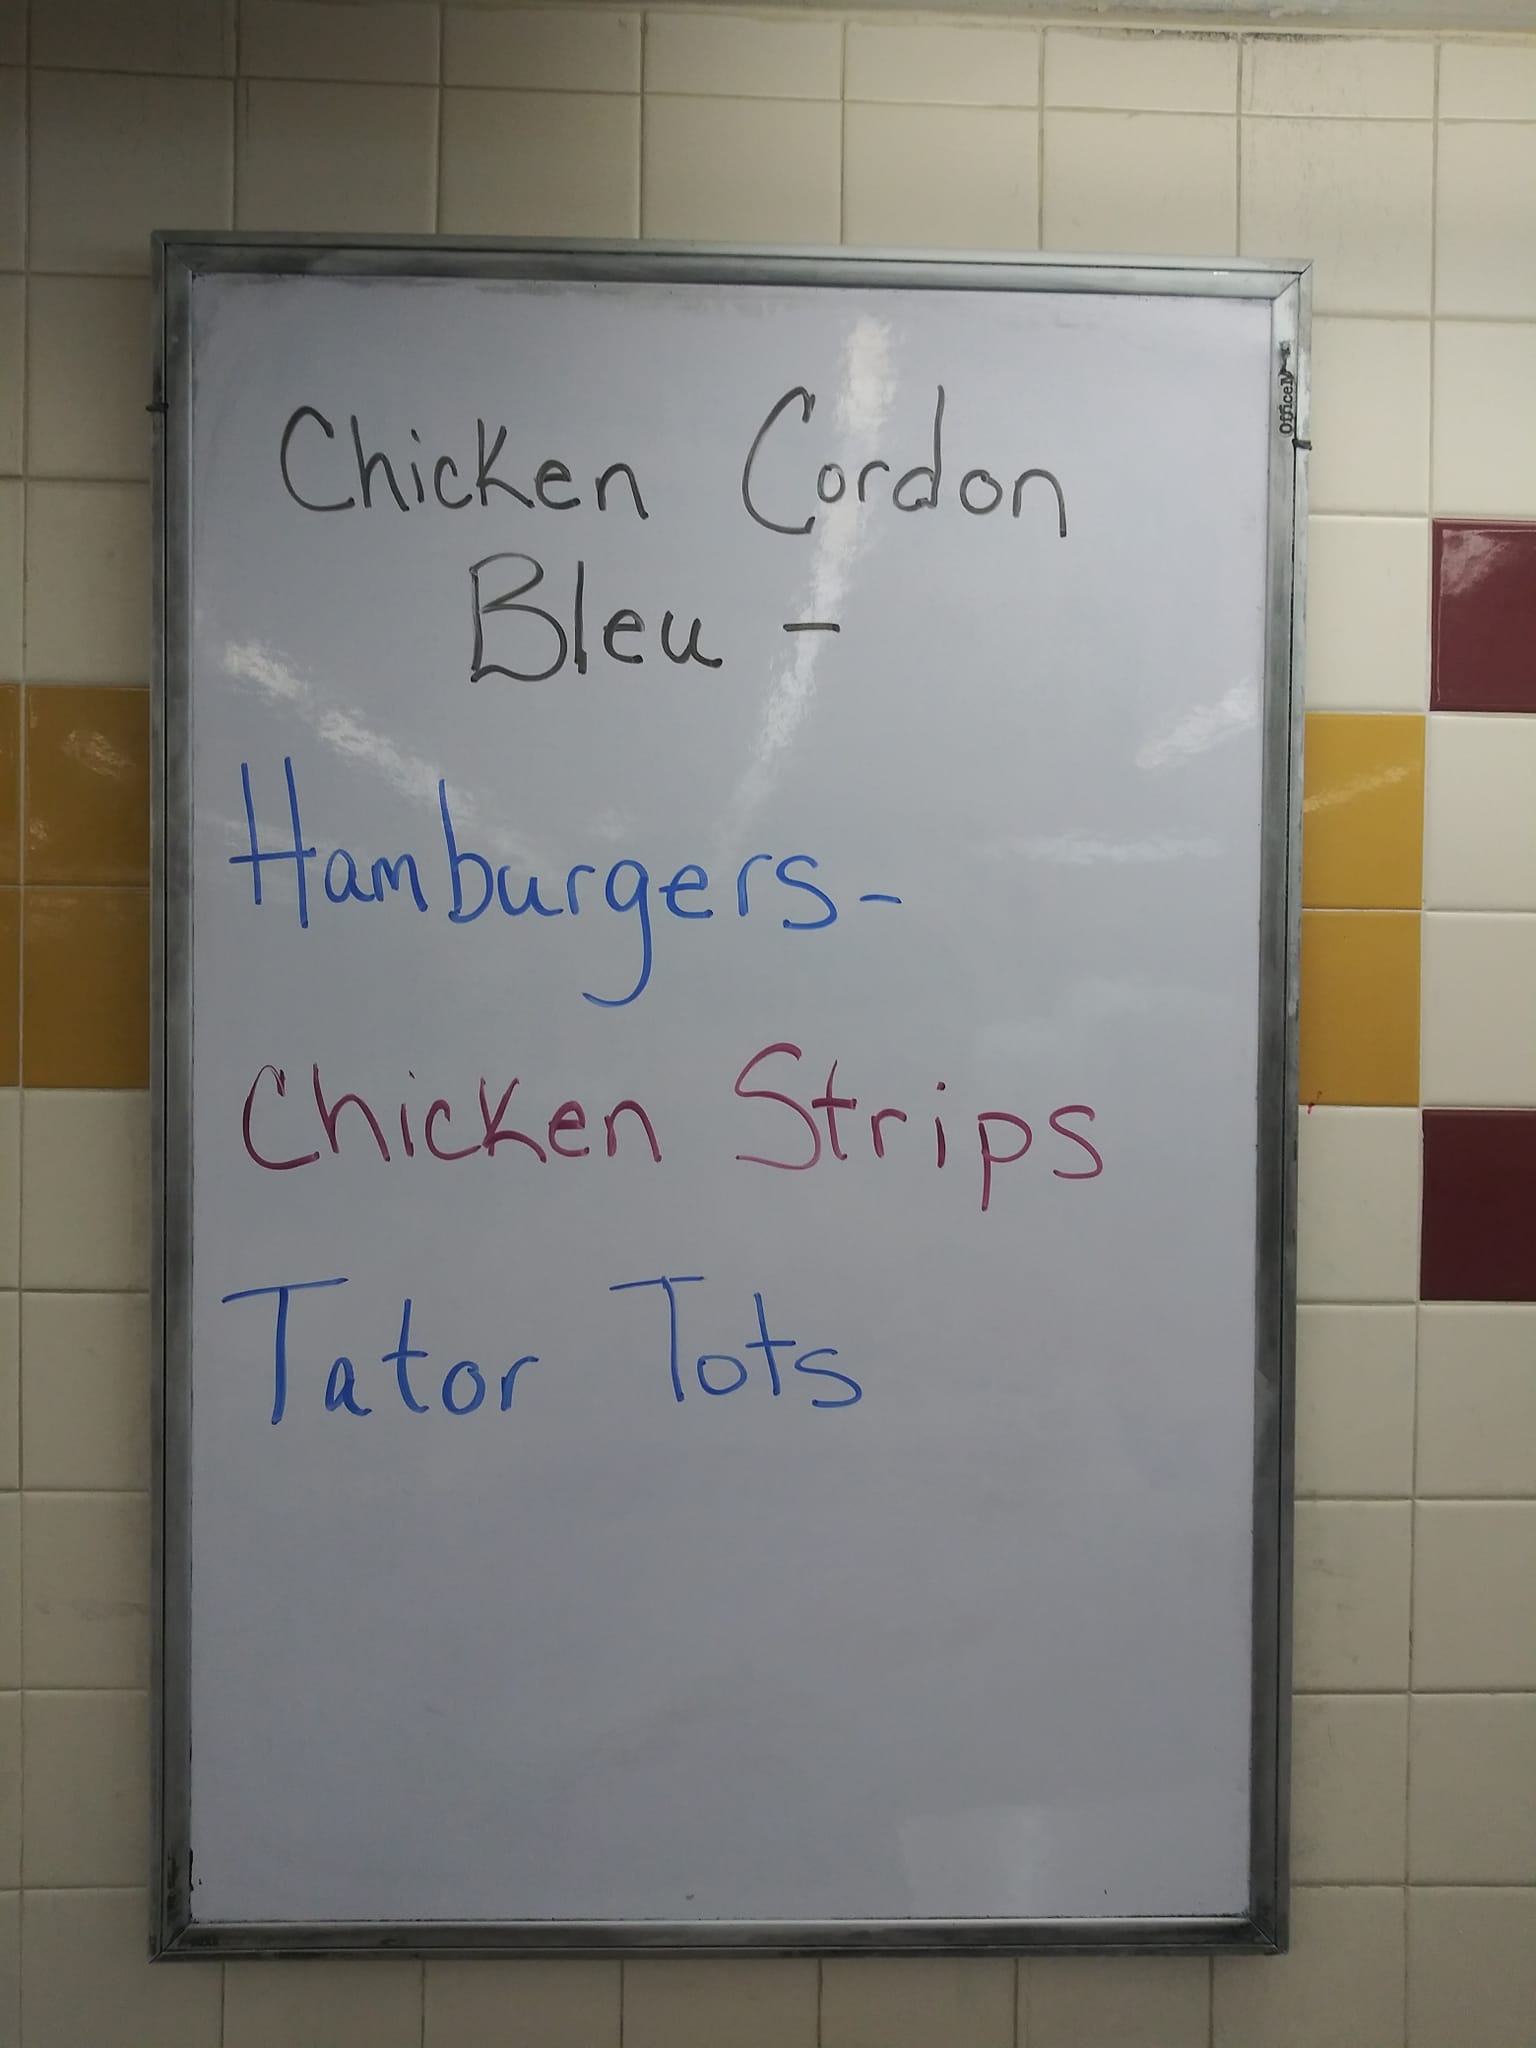 Chicken Cordon
Bleu -
Hamburgers-
Chicken Strips
Tator Tots